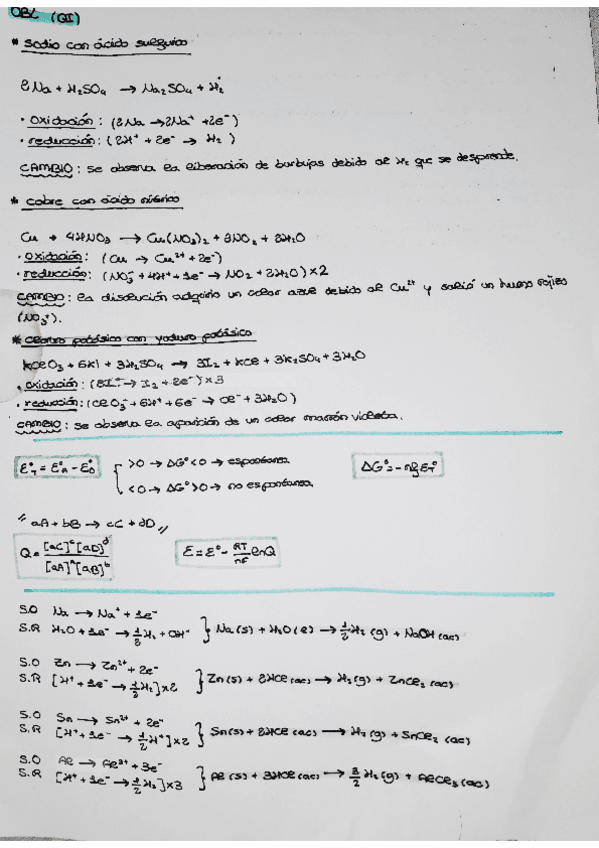 OBL (QI)
* Sodio con ácido sulfúrico
2Na + H₂SO₄ → Na₂SO₄ + H₂
· oxidación: (2Na → 2Na⁺ + 2e⁻)
· reducción: (2H⁺ + 2e⁻ → H₂)
CAMBIO: se observa la liberación de burbujas debido al H₂ que se desprende.
* Cobre con ácido nítrico
Cu + 4HNO₃ → Cu(NO₃)₂ + 2NO₂ + 2H₂O
· oxidación: (Cu → Cu²⁺ + 2e⁻)
· reducción: (NO₃⁻ + 4H⁺ + 1e⁻ → NO₂ + 2H₂O) × 2
CAMBIO: la disolución adquirió un color azul debido al Cu²⁺ y salió un humo rojizo
* Clorato potásico con yoduro potásico
KClO₃ + 6KI + 3H₂SO₄ → 3I₂ + KCl + 3K₂SO₄ + 3H₂O
· oxidación: (2I⁻ → I₂ + 2e⁻) × 3
· reducción: (ClO₃⁻ + 6H⁺ + 6e⁻ → Cl⁻ + 3H₂O)
CAMBIO: se observa la aparición de un color marrón violeta.
ε°T = ε°A - ε°O { >0 → ΔG° <0 → espontánea
<0 → ΔG° >0 → no espontánea
ΔG° = -nFε°T
" aA + bB → cC + dD "
Q = [aC]ᶜ[aD]ᵈ / [aA]ᵃ[aB]ᵇ
ε = ε° - RT/nF lnQ
S.O Na → Na⁺ + 1e⁻
S.R H₂O + 1e⁻ → ½H₂ + OH⁻ } Na(s) + H₂O(l) → ½H₂(g) + NaOH(ac)
S.O Zn → Zn²⁺ + 2e⁻
S.R [H⁺ + 1e⁻ → ½H₂] × 2 } Zn(s) + 2HCl(ac) → H₂(g) + ZnCl₂(ac)
S.O Sn → Sn²⁺ + 2e⁻
S.R [H⁺ + 1e⁻ → ½H⁺] × 2 } Sn(s) + 2HCl(ac) → H₂(g) + SnCl₂(ac)
S.O Al → Al³⁺ + 3e⁻
S.R [H⁺ + 1e⁻ → ½H₂] × 3 } Al(s) + 3HCl(ac) → 3/2H₂(g) + AlCl₃(ac)